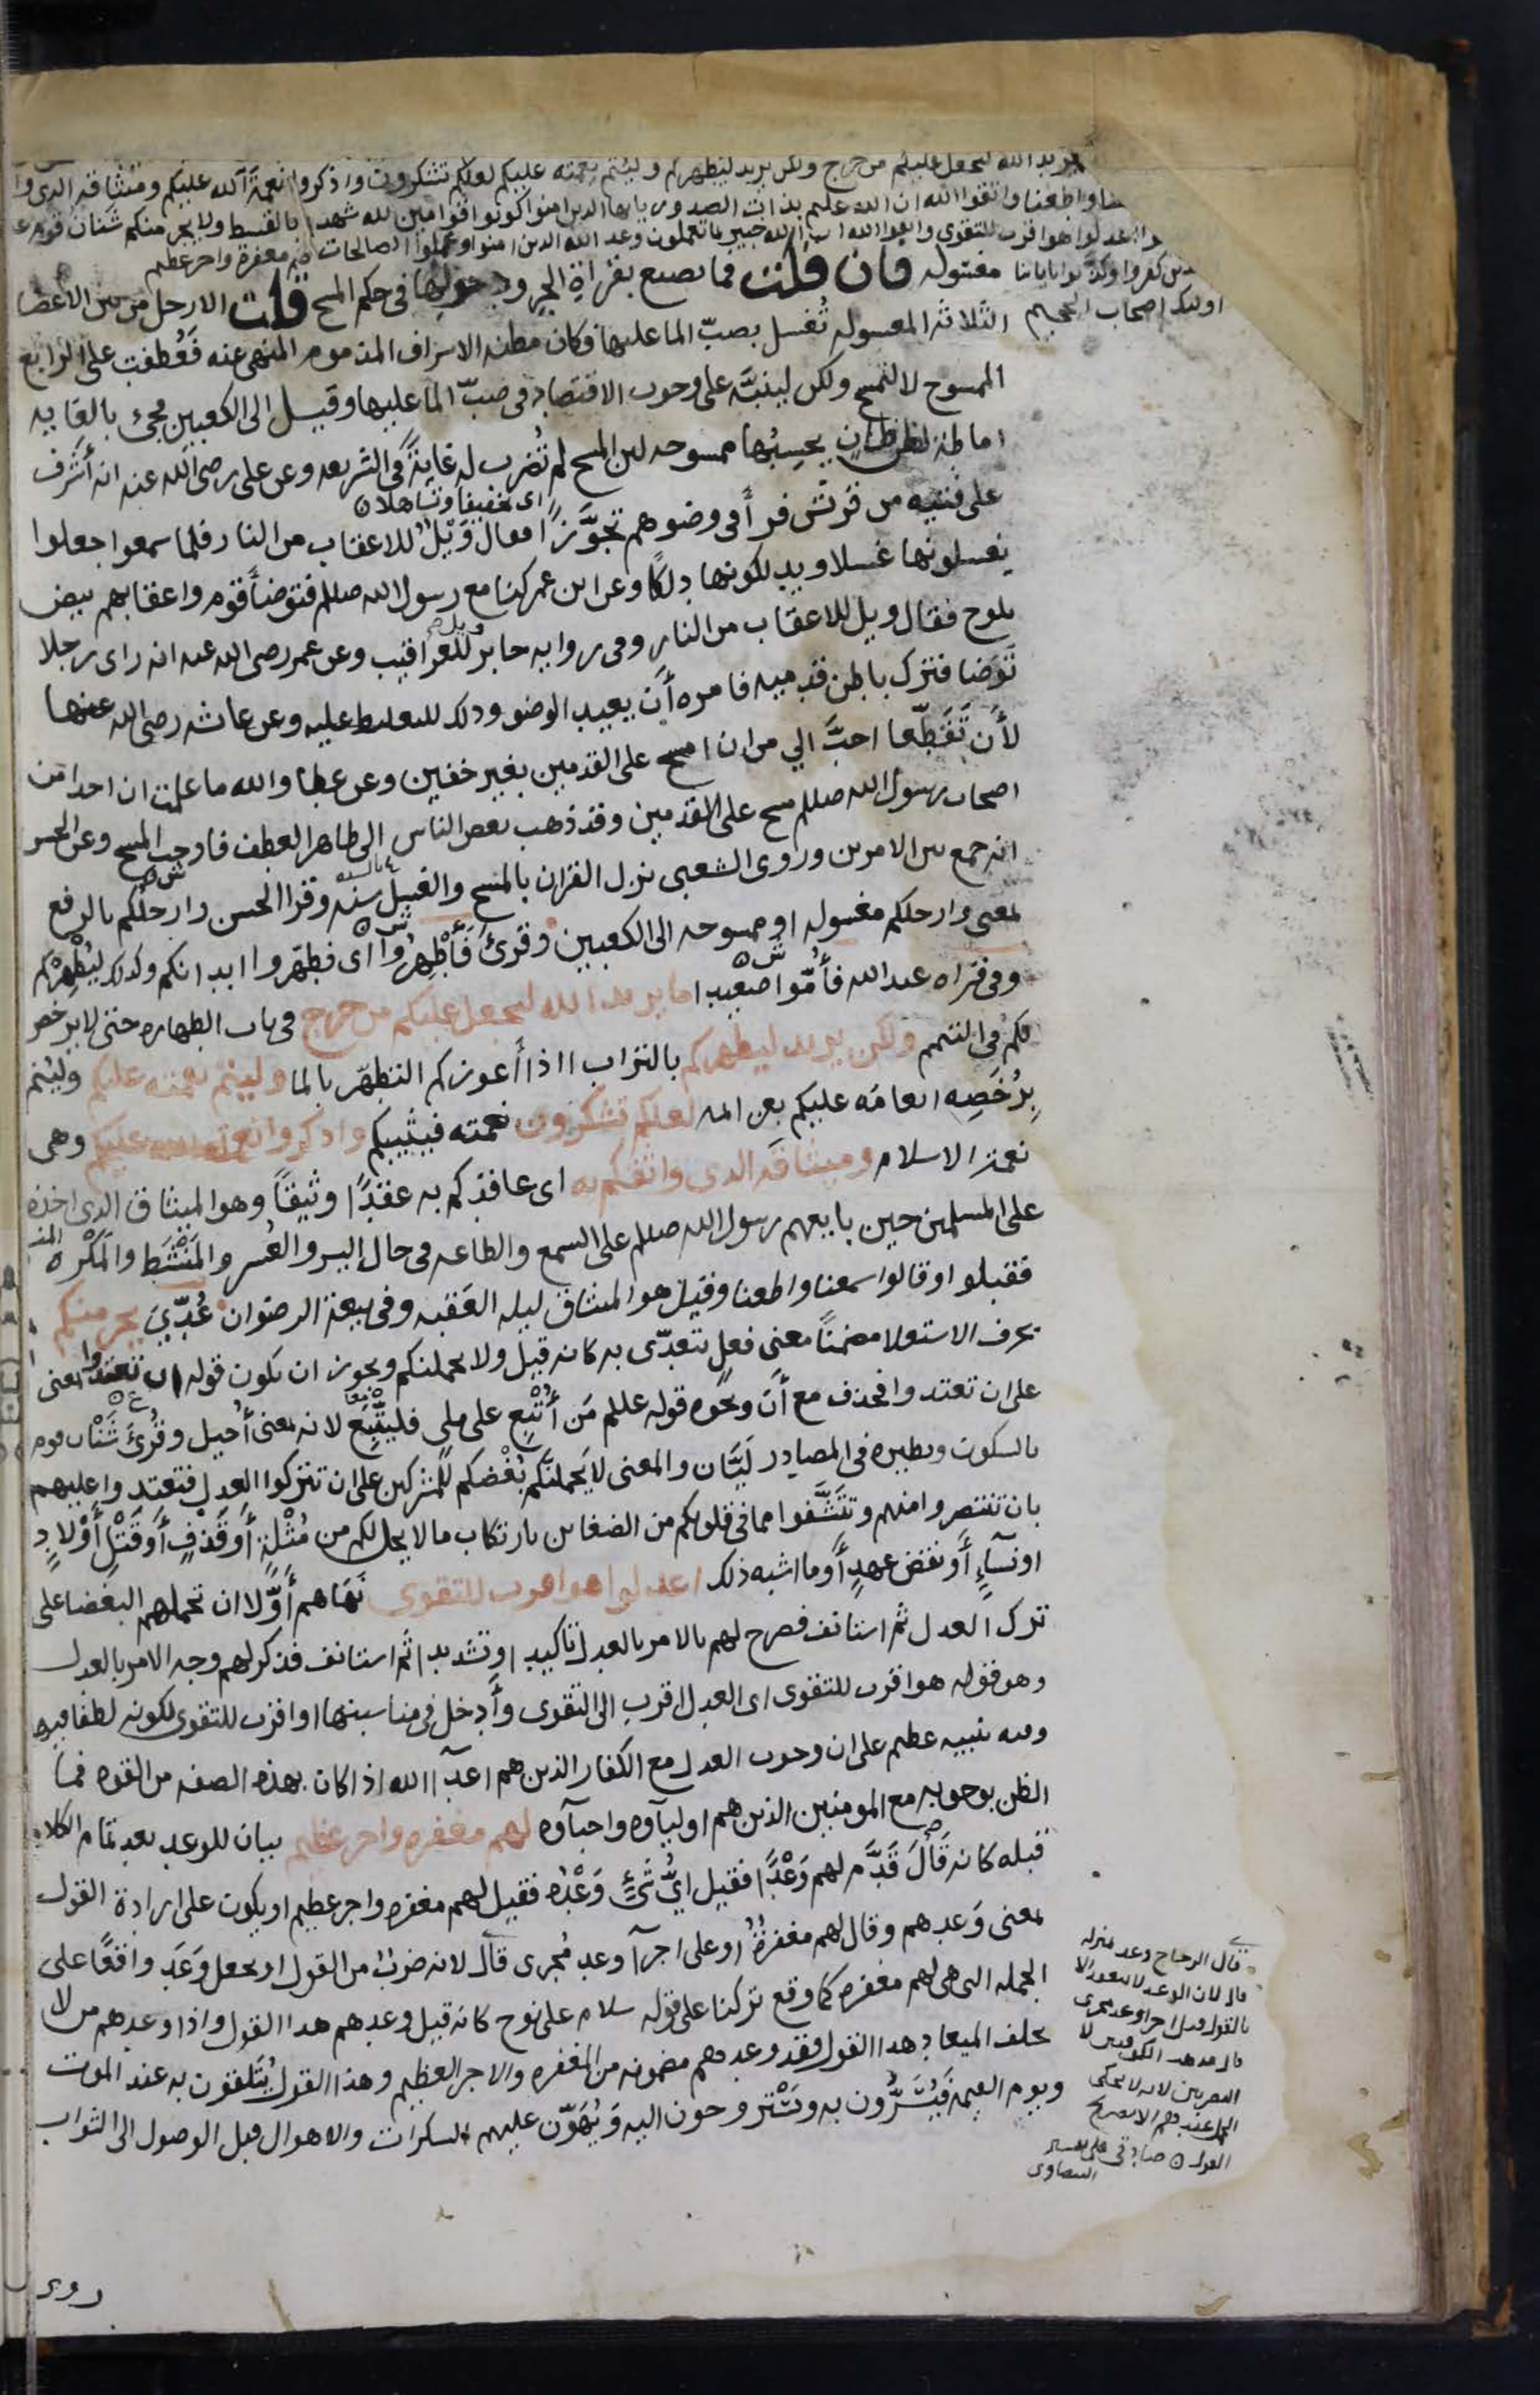 يريد الله ليجعل عليكم من حرج ولكن يريد ليطهركم وليتم نعمته عليكم لعلكم تشكرون واذكروا نعمة الله عليكم وميثاقه الذي وا
واطعنا واتقوا الله ان الله عليم بذات الصدور يايها الذين امنوا كونوا قوامين لله شهدا بالقسط ولا يجرمنكم شنان قوم ع
اعدلوا هو اقرب للتقوى واتقوا الله ان الله خبير بما تعملون وعد الله الذين امنوا وعملوا الصالحات لهم مغفرة واجر عظيم
كفروا وكذبوا باياتنا
اولئك اصحاب الجحيم
مغسوله فان قلت فما تصنع بقراءة الجر ودخولها في حكم المسح قلت الارجل من بين الاعضا
الثلاثة المغسوله تُغسل بصبّ الما عليها فكان مظنه الاسراف المذموم المنهي عنه فعُطفت على الرابع
الممسوح لا لتمسح ولكن لينبّه على وجوب الاقتصاد في صبّ الما عليها وقيل الى الكعبين فجئ بالغايه
اماطة لظن ظانٍ يحسبُها ممسوحه لان المسح لم تُضرب له غايةً في الشريعه وعن علي رضى الله عنه انه أشرف
اى تخفيفا وتساهلا
على فتيه من قريش فرأى في وضوهم تجوّزًا فقال وَيْلٌ للاعقاب من النار فلما سمعوا جعلوا
يغسلونها غسلا ويدلكونها دلكًا وعن ابن عمر كنا مع رسول الله صللم فتوضأ قوم واعقابهم بيض
تلوح فقال ويل للاعقاب من النار وفى روايه جابر ويل للعراقيب وعن عمر رضى الله عنه انه راى رجلا
تَوَضا فترك باطن قدميه فامره أن يعيد الوضو وذلك للتغليظ عليه وعن عائشه رضى الله عنها
لأن تُقطّعا احبَّ الي من ان امسح على القدمين بغير خفين وعن عطا والله ما علمت ان احدا من
اصحاب رسول الله صللم مسح على القدمين وقد ذهب بعض الناس الى ظاهر العطف فاوجب المسح وعن الحسن
انه جمع بين الامرين وروى الشعبى نزل القران بالمسح والغسل سنه وقرا الحسن وارجلُكم بالرفع
بمعنى وارجلكم مغسوله او ممسوحه الى الكعبين وقرئ فَأَطْهِرُوا اى فطهّروا ابدانكم وكذلك ليُطْهِرَكم
وفى قراه عبد الله فأُمّوا صعيدا ما يريد الله ليجعل عليكم من حرج فى باب الطهاره حتى لا يرخص
لكم في التيمم ولكن يريد ليطهركم بالتراب اذا أعوزكم التطهّر بالما وليتم نعمته عليكم وليُتم
بِرُخَصِه انعامَه عليكم بعزائمه لعلكم تشكرون نعمته فيثيبكم واذكروا نعمة الله عليكم وهى
نعمة الاسلام وميثاقَه الذى واثقكم به اى عاقدكم به عقدًا وثيقًا وهو الميثاق الذى اخذه
على المسلمين حين بايعهم رسول الله صللم على السمع والطاعه فى حال اليسر والعُسر والمَنْشَط والمَكْرَه
فقبلوا وقالوا سمعنا واطعنا وقيل هو الميثاق ليله العَقبه وفى بيعة الرضوان عُدِّيَ يجرمنكم
بحرف الاستعلا مضمنًا معنى فعل يتعدّى به كانه قيل ولا يحملنكم ويجوز ان يكون قوله ان تعتدوا بمعنى
على ان تعتدوا فحذف مع أن ونحوه قوله عللم مَن أُتْبِع على ملي فليَتْبَع لانه بمعنى أُحيل وقُرئ شَنْان قوم
بالسكون ونظيره في المصادر لَيَّان والمعنى لا يَحملنّكم بُغْضكم للمشركين على ان تتركوا العدل فتعتدوا عليهم
بان تنتصروا منهم وتتَشَفَّوا مما فى قلوبكم من الضغاين بارتكاب ما لا يحل لكم من مُثْلةٍ أو قذفٍ أو قَتْلِ أوْلادٍ
او نسآءٍ أو نقض عهدٍ أو ما اشبه ذلك اعدلوا هو اقرب للتقوى نَهاهم أوّلا ان تحملهم البغضا على
ترك العدل ثم استانف فصرح لهم بالامر بالعدل تاكيدا وتشديدا ثم استانف فذكر لهم وجه الامر بالعدل
وهو قوله هو اقرب للتقوى اى العدل اقرب الى التقوى وأدخل فى مناسبتها او اقرب للتقوى لكونه لطفا فيها
وفيه تنبيه عظيم على ان وجوب العدل مع الكفار الذين هم اعدآ الله اذا كان بهذه الصفه من القوه فما
الظن بوجوبه مع المومنين الذين هم اولياوه واحباوه لهم مغفره واجر عظيم بيان للوعد بعد تمام الكلام
قبله كانه قَالَ قَدَّم لهم وَعْدًا فقيل ايُّ شئٍ وَعْدُه فقيل لهم مغفره واجر عظيم او يكون على ارادة القول
بمعنى وَعدهم وقال لهم مغفرةٌ او على اجرآ وعد مُجرى قال لانه ضربٌ من القول او يجعل وَعَدَ واقعًا على
الجمله التى هى لهم مغفره كما وقع تركنا على قوله سلام على نوح كانه قيل وعدهم هذا القول واذا وعدهم من لا
يخلف الميعاد هذا القول فقد وعدهم مضمونه من المغفره والاجر العظيم وهذا القول يُتلقون به عند الموت
ويوم القيمة فيُسَرُّون به ويَسْتَروحون اليه ويُهَوّن عليهم السكرات والاهوال قبل الوصول الى الثواب
قال الزجاج وعد منزله
قال لان الوعد لا ينعقد الا
بالقول اجرا وعد مجرى
قال مذهب الكوفيين لا
البصريين لانه لا يحكى
عندهم الا بصريح
القول